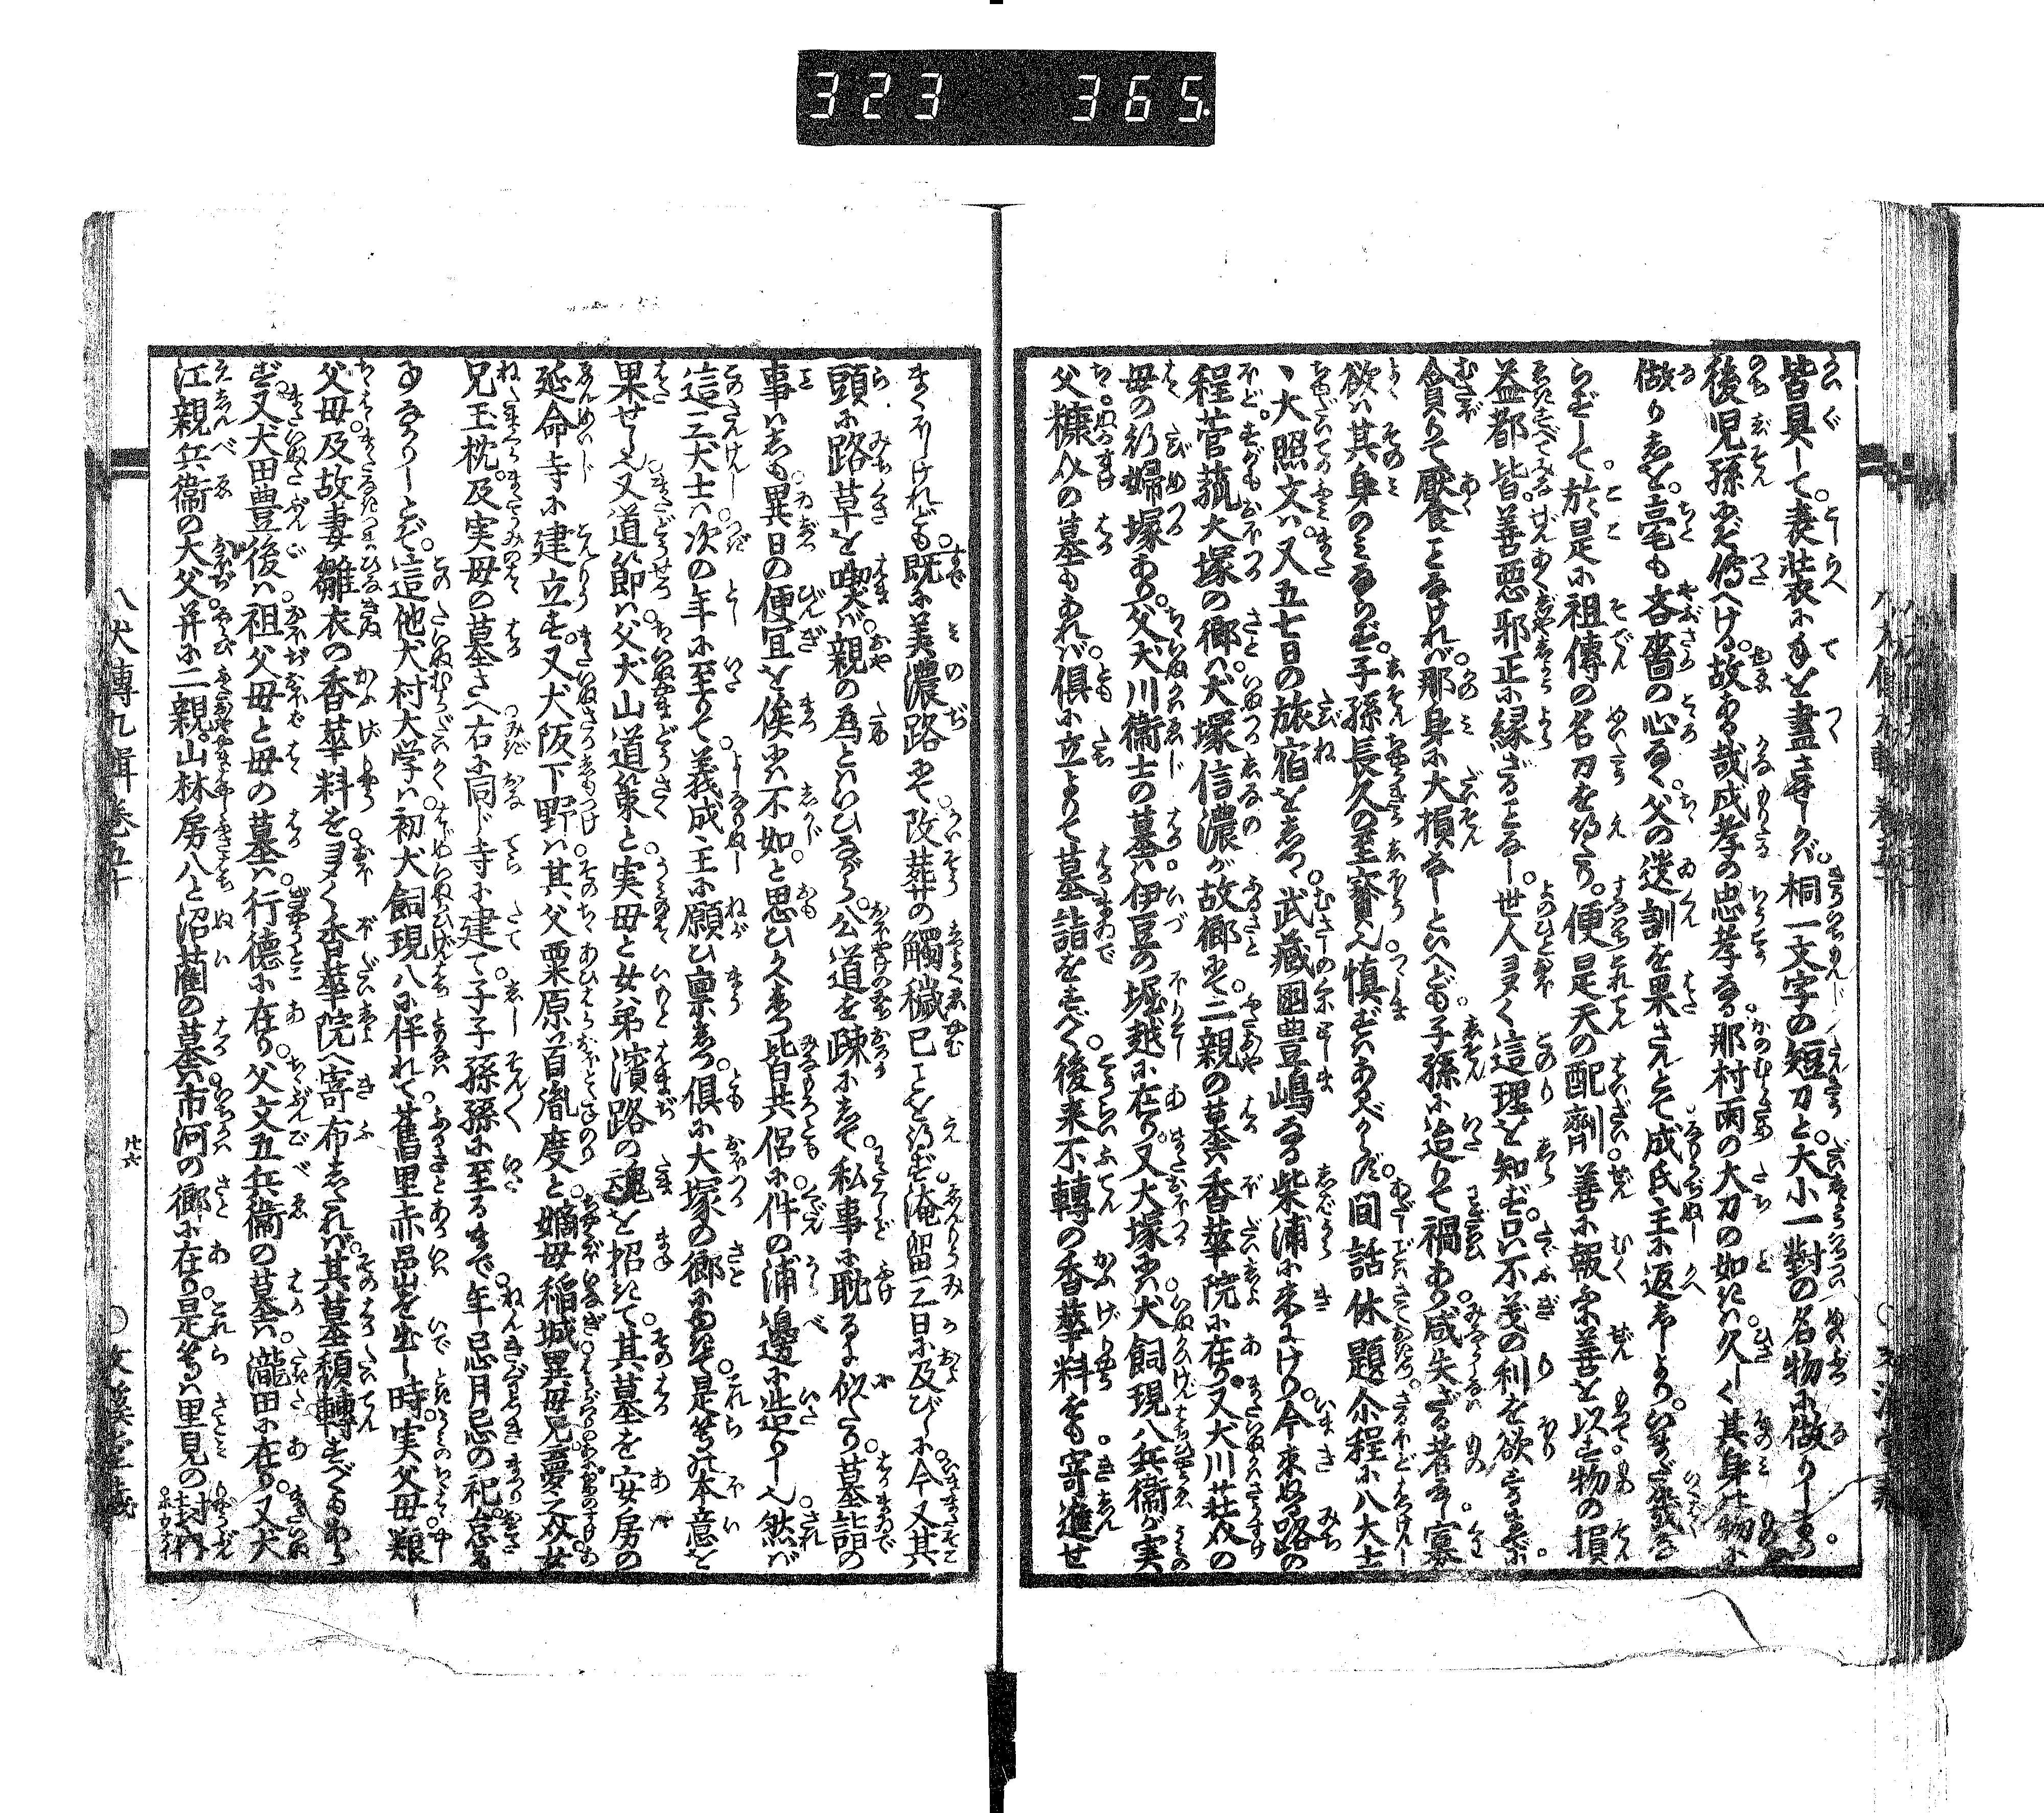 323 365
皆具して表装に手を盡させしかば桐一文字の短刀と大小一對の名物に做りしより
後児孫まで傳へける故ある哉戍孝の忠孝なる那村雨の大刀の如きは久しく其身の物に
做りしを毫も吝嗇の心なく父の遺訓を果さんとて成氏主に返しゝより
らずして於是に祖傳の名刀を得たり便是天の配剤善に報ふ善を以す物の損
益都皆善悪邪正に縁ざることなし世人多く這理を知ず只不義の利を欲するまでに
貪りて饜ことなければ那身に大損なしといへども子孫に迨りて禍あり咸失ざる者なし寡
欲は其身のみならず子孫長久の至寶也慎ずはあるべからず間話休題尒程に八犬士
丶大照文は又五七日の旅宿をしつ武藏囯豊嶋なる柴浦に来にけり今来ぬる路の
程菅菰大塚の郷は犬塚信濃が故郷にて二親の墓は香華院に在り又犬川荘介の
母の行婦塚あり父犬川衞士の墓は伊豆の堀越に在り又大塚には犬飼現八兵衞が実
父糠介の墓もあれば倶に立よりて墓詣をすべく後来不轉の香華料をも寄進せ
まくほしけれども既に美濃路にて改葬の觸穢已ことを得ず淹留三日に及びしに今又其
頭に路草を喫ば親の為とはいひながら公道を疎にして私事に耽るに似たり墓詣の
事はしも異日の便宜を俟には不如と思ひかへしつ皆共侶に件の浦邊に造りし也然ば
這三犬士は次の年に至りて義成主に願ひ稟しつ倶に大塚の郷に赴きて是等の本意を
果せし也又道節は父犬山道策と実母と女弟濱路の魂を招きて其墓を安房の
延命寺に建立す又犬阪下野は其父粟原首胤度と嫡母稲城異母兄夢之介女
兄玉枕及実母の墓さへ右に同じ寺に建て子子孫孫に至るまで年忌月忌の祀怠る
ことなかりしとぞ這他犬村大学は初犬飼現八に伴れて舊里赤岩を出し時実父母親
父母及故妻雛衣の香華料を多く香華院へ寄布したれば其墓頽轉すべもあら
ず又犬田豊後は祖父母と母の墓は行德に在り父文五兵衞の墓は瀧田に在り又犬
江親兵衞の大父并に二親山林房八と沼藺の墓は市河の郷に在り是等は里見の封内
八犬傳九輯巻五十
廿六
文溪堂藏